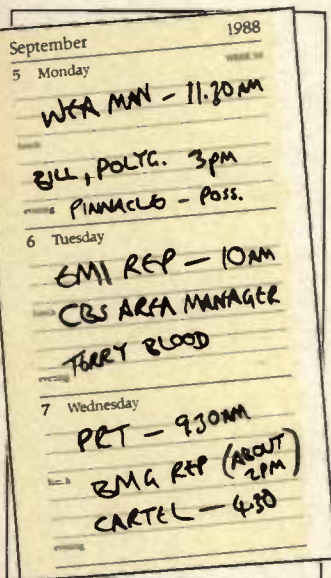 September 1988
5 Monday
WEA MAN - 11.30AM
lunch
BILL, POLYG. 3PM
evening PINNACLE - POSS.
6 Tuesday
EMI REP - 10AM
lunch CBS AREA MANAGER
TERRY BLOOD
evening
7 Wednesday
PRT - 9.30AM
lunch BMG REP (ABOUT 2PM)
CARTEL - 4.30
evening